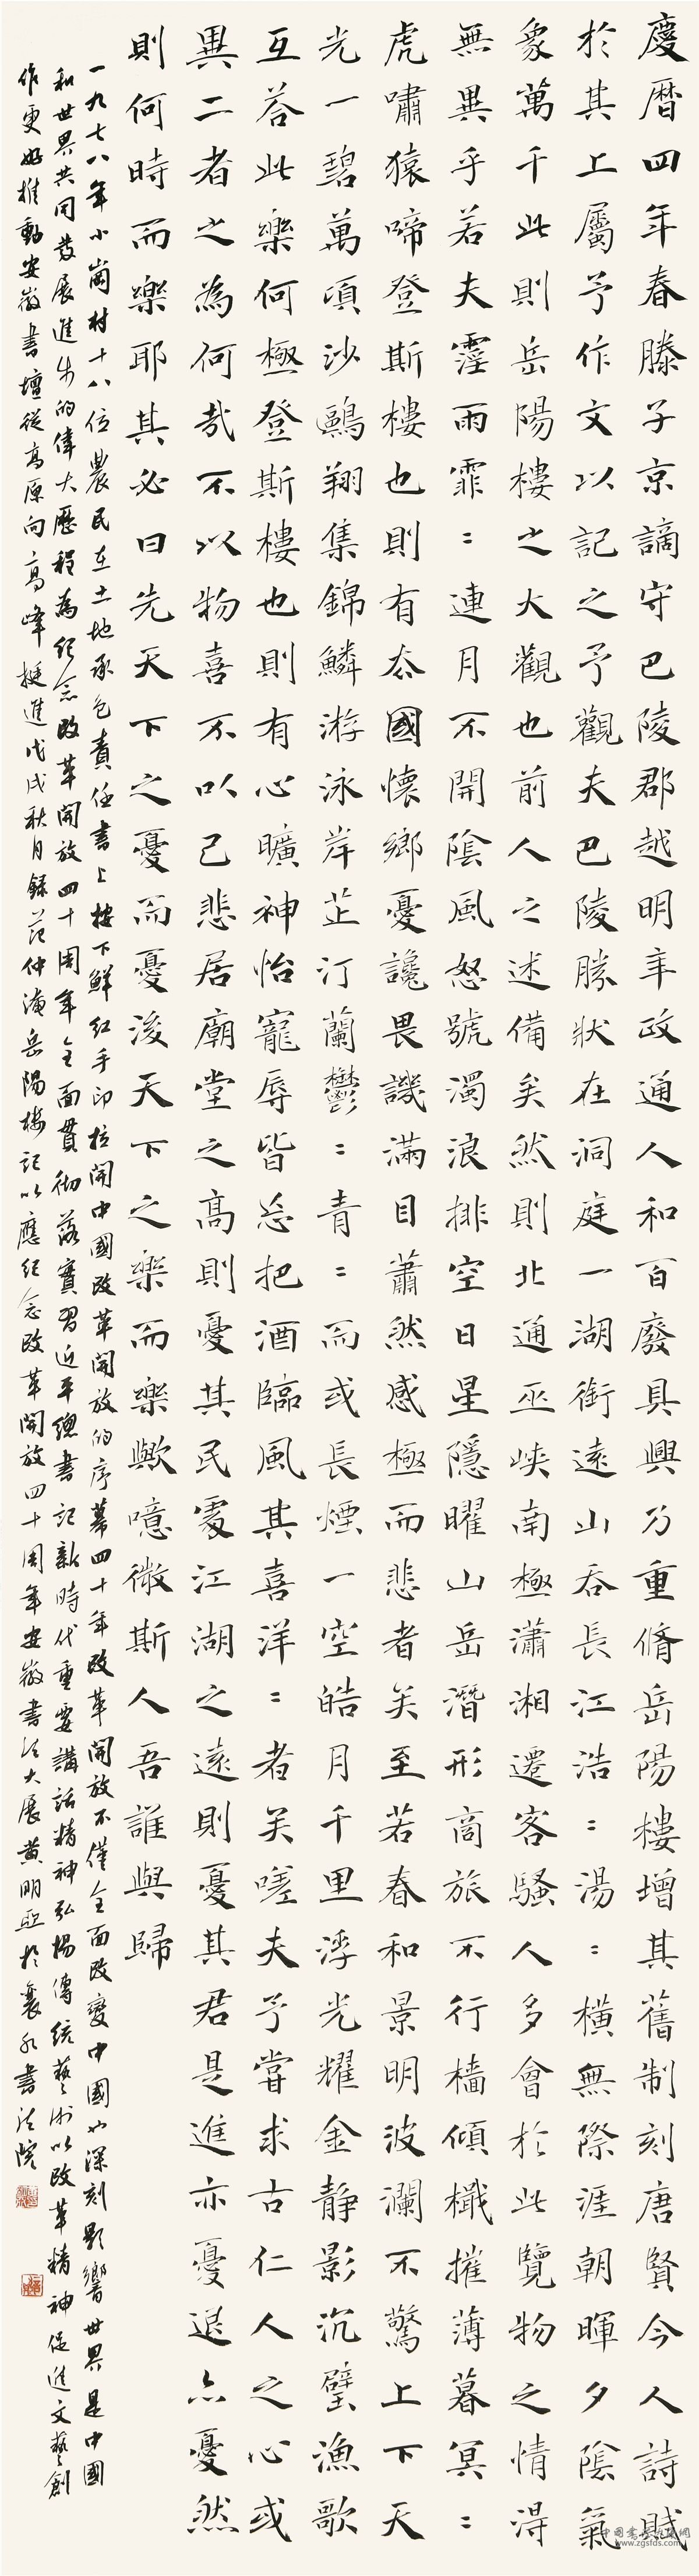 慶曆四年春滕子京謫守巴陵郡越明年政通人和百廢具興乃重脩岳陽樓增其舊制刻唐賢今人詩賦
於其上屬予作文以記之予觀夫巴陵勝狀在洞庭一湖銜遠山吞長江浩〻湯〻橫無際涯朝暉夕陰氣
象萬千此則岳陽樓之大觀也前人之述備矣然則北通巫峽南極瀟湘遷客騷人多會於此覽物之情得
無異乎若夫霪雨霏〻連月不開陰風怒號濁浪排空日星隱曜山岳潛形商旅不行檣傾檝摧薄暮冥〻
虎嘯猿啼登斯樓也則有去國懷鄉憂讒畏譏滿目蕭然感極而悲者矣至若春和景明波瀾不驚上下天
光一碧萬頃沙鷗翔集錦鱗游泳岸芷汀蘭鬱〻青〻而或長煙一空皓月千里浮光耀金靜影沉璧漁歌
互答此樂何極登斯樓也則有心曠神怡寵辱皆忘把酒臨風其喜洋〻者矣嗟夫予嘗求古仁人之心或
異二者之為何哉不以物喜不以己悲居廟堂之高則憂其民處江湖之遠則憂其君是進亦憂退亦憂然
則何時而樂耶其必曰先天下之憂而憂後天下之樂而樂歟噫微斯人吾誰與歸
一九七八年小崗村十八位農民在土地承包責任書上按下鮮紅手印拉開中國改革開放的序幕四十年改革開放不僅全面改變中國也深刻影響世界是中國
和世界共同發展進步的偉大歷程為紀念改革開放四十周年全面貫彻落實習近平總書記新時代重要講話精神弘揚傳統藝術以改革精神促進文藝創
作更好推動安徽書壇從高原向高峰挺進戊戌秋月錄范仲淹岳陽樓記以應紀念改革開放四十周年安徽書法大展黃明亞於襄水書法院
www.zgsfds.com